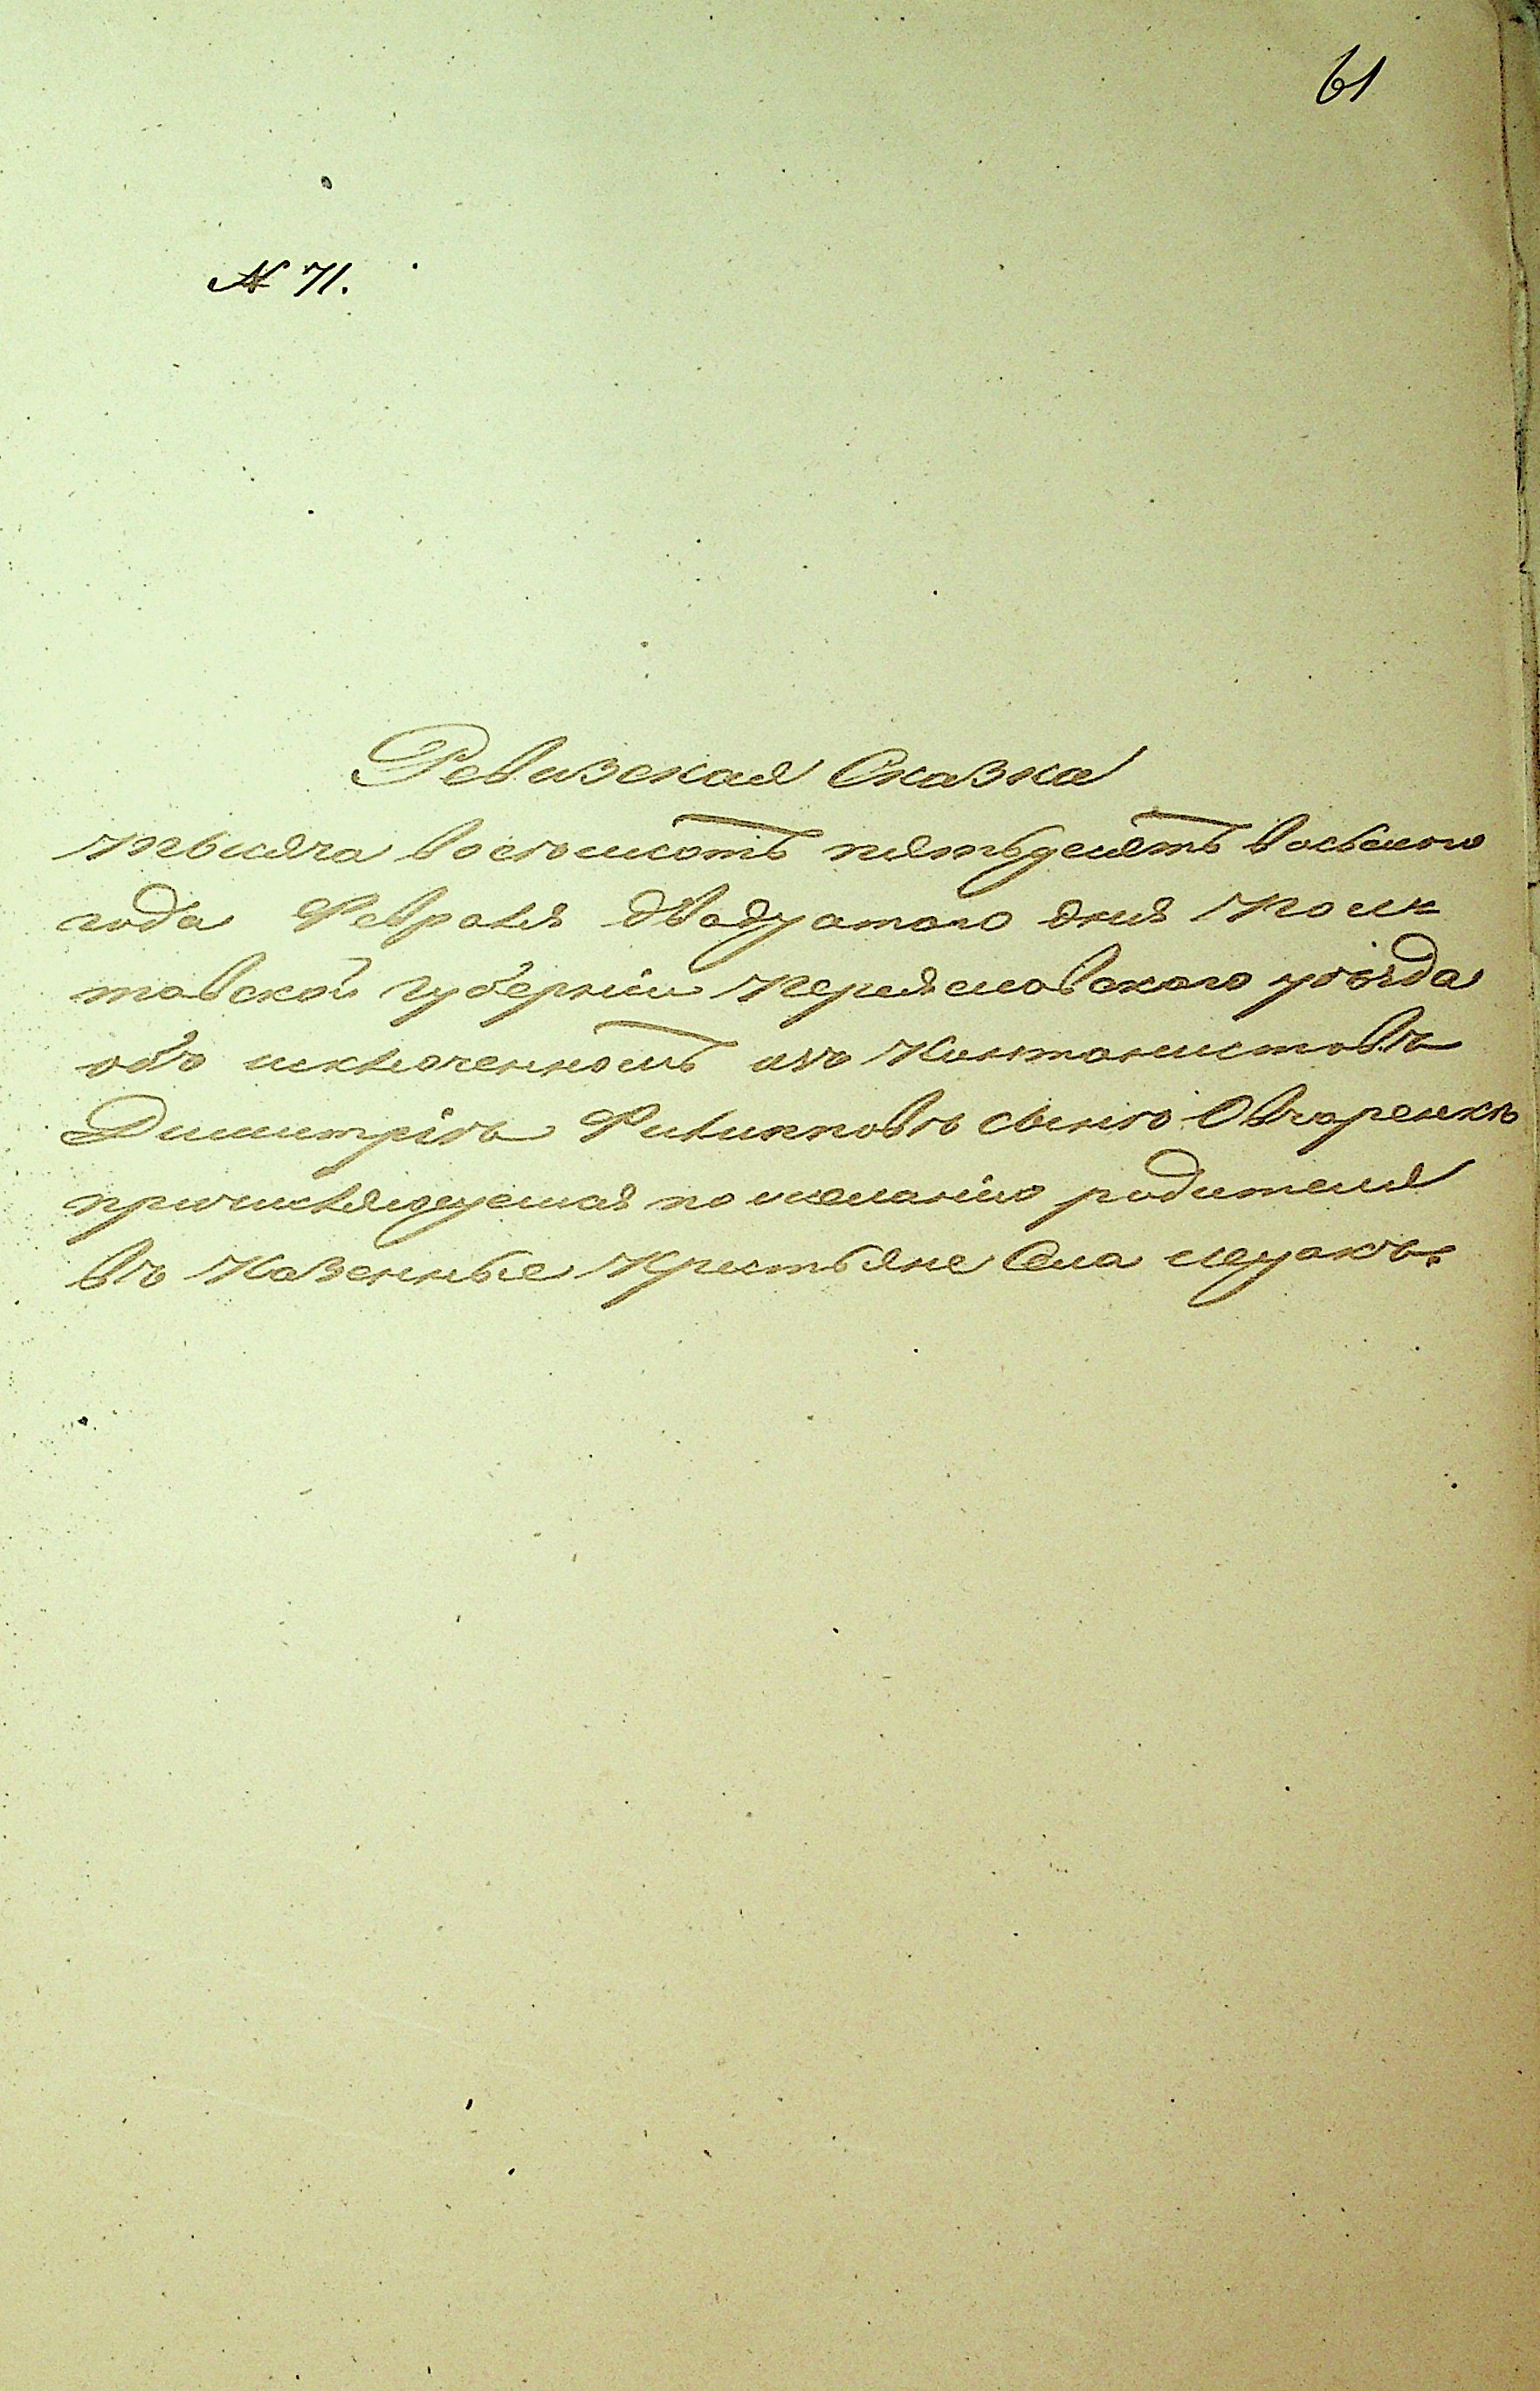 61
№ 71.
Ревизская Сказка
тысяча восемьсотъ пятьдесятъ восьмого
года Февраля двадцатого дня Пол-
тавской губерніи Переясловского уѣзда
объ исключенномъ изъ Кантонистовъ
Димитріѣ Филипповѣ сынѣ Овчаренкѣ
причисляющемся по желанію родителя
въ Казенные Крестьяне Села